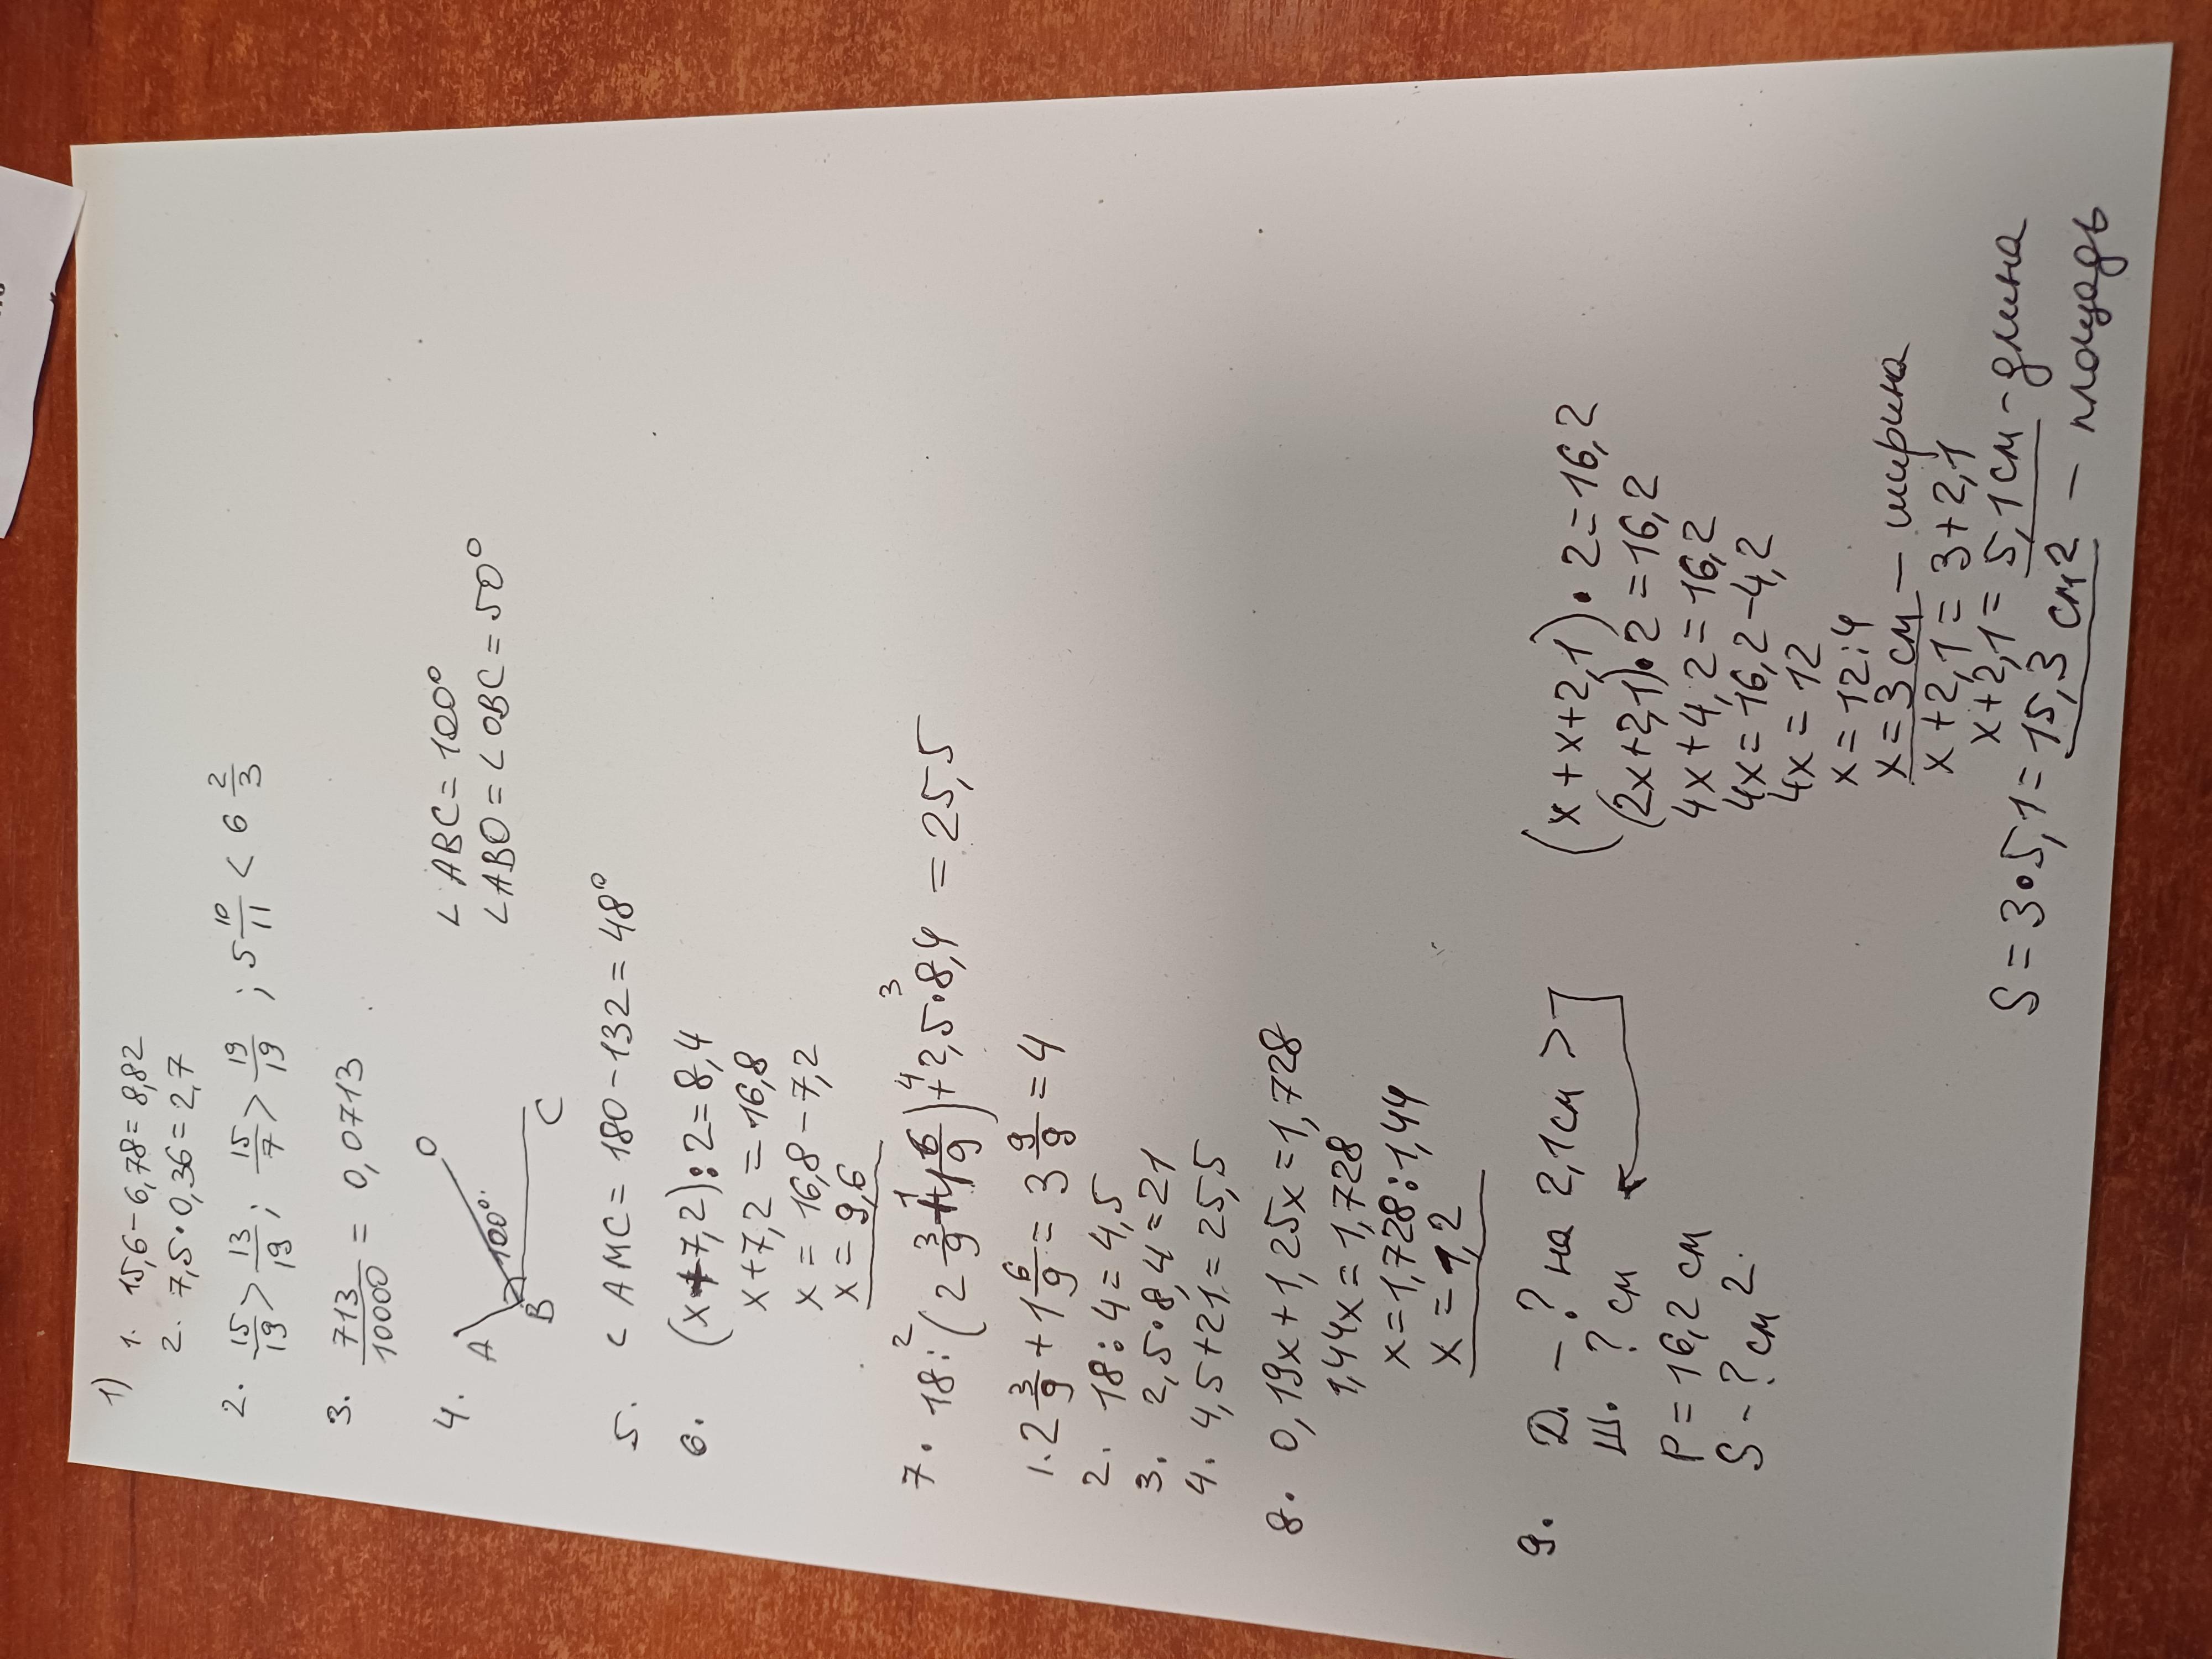 1) 1. 15,6-6,78=8,82
2. 7,5•0,36=2,7
2. 15/19 > 13/19; 15/7 > 19/19; 5 10/11 < 6 2/3
3. 713/10000 = 0,0713
4. A O
100°
B C
∠ABC=100°
∠ABO=∠OBC=50°
5. ∠AMC=180-132=48°
6. (x+7,2):2=8,4
x+7,2=16,8
x=16,8-7,2
x=9,6
7. 18:(2 3/9+1 6/9)+2,5•8,4=25,5
2 1 4 3
1. 2 3/9+1 6/9=3 9/9=4
2. 18:4=4,5
3. 2,5•8,4=21
4. 4,5+21=25,5
8. 0,19x+1,25x=1,728
1,44x=1,728
x=1,728:1,44
x=1,2
9. Д. - ? на 2,1см >
Ш. ? см
P=16,2 см
S-? см2.
(x+x+2,1)•2=16,2
(2x+2,1)•2=16,2
4x+4,2=16,2
4x=16,2-4,2
4x=12
x=12:4
x=3см - ширина
x+2,1=3+2,1
x+2,1=5,1см-длина
S=3•5,1=15,3 см2 - площадь